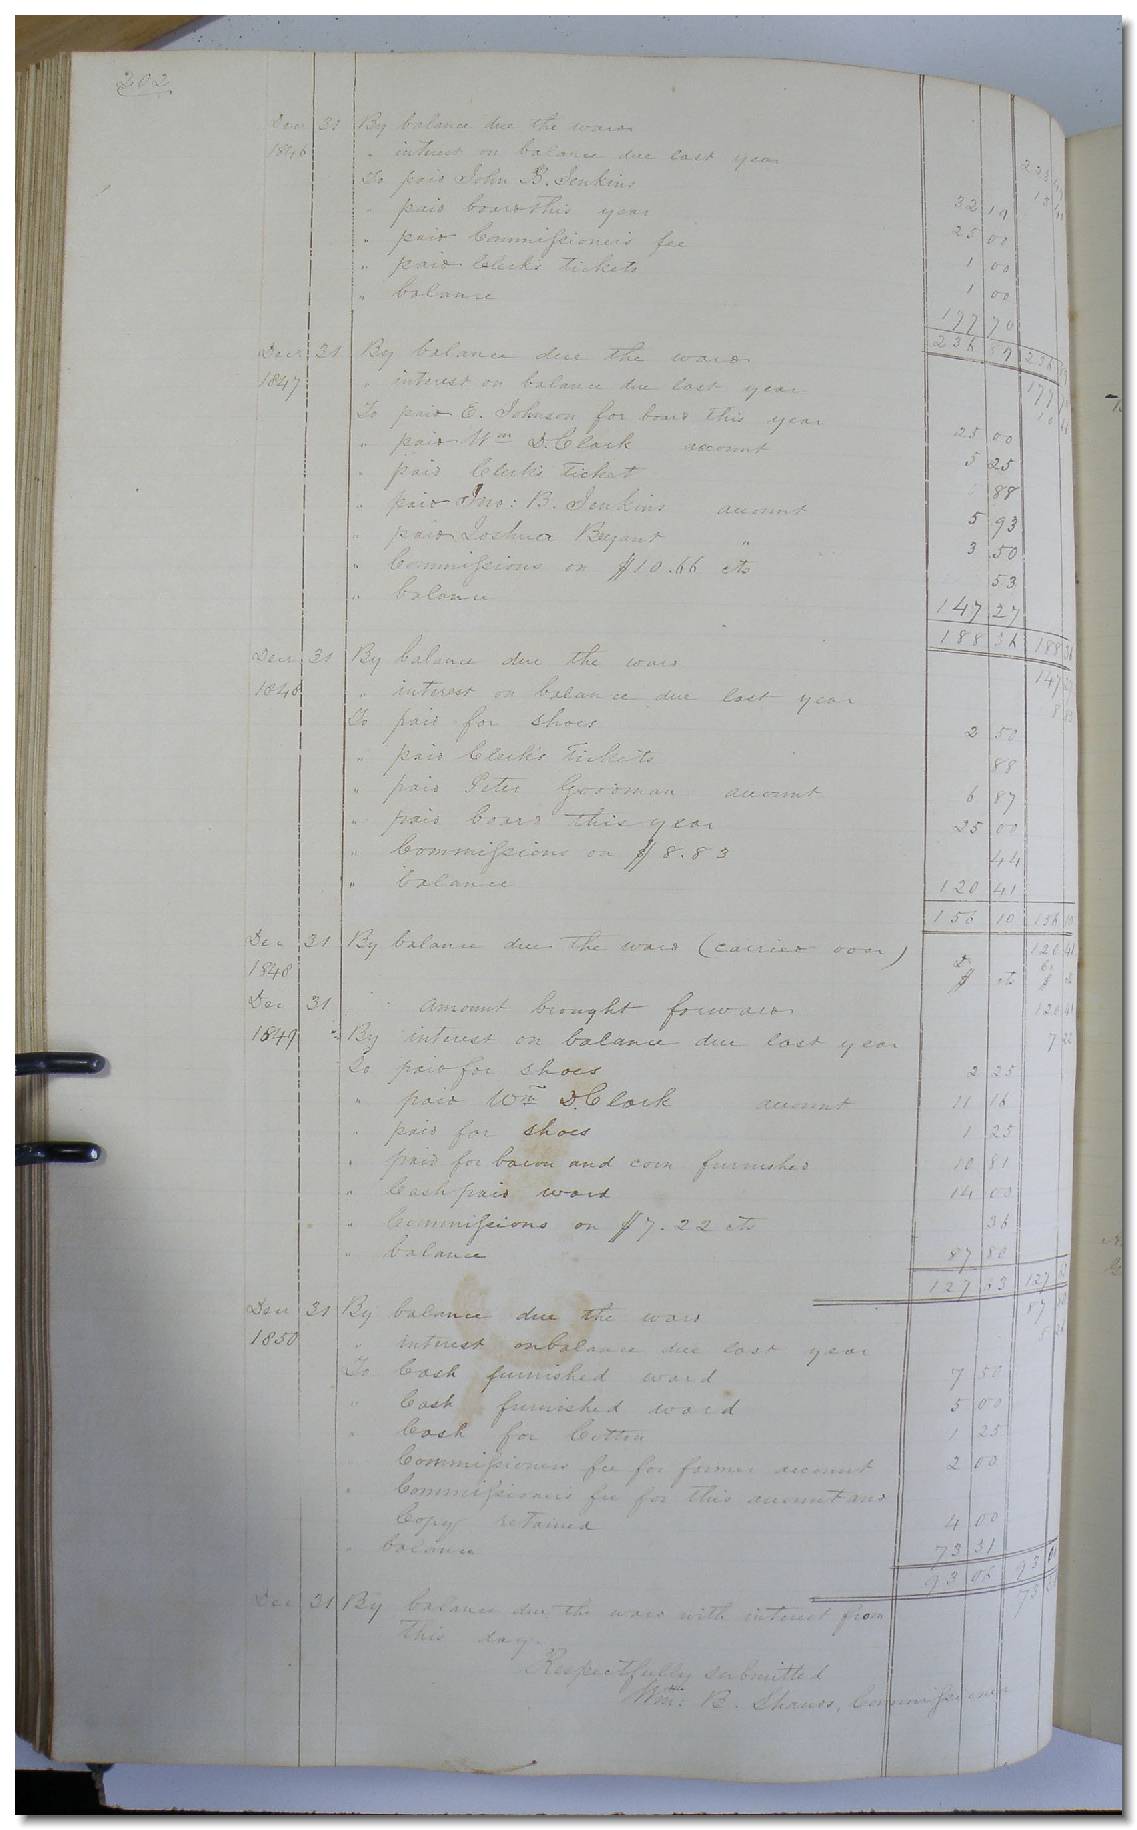 202
Decr 31 By balance due the ward
1846 " interest on balance due last year
To paid John B. Jenkins 32 19
" paid board this year 25 00
" paid Commissioner's fee 1 00
" paid Clerk's tickets 1 00
" balance 177 70
236 89 236 89
Decr 31 By balance due the ward 177 70
1847 " interest on balance due last year 10 66
To paid E. Johnson for board this year 25 00
" paid Wm D. Clark account 5 25
" paid Clerk's ticket 88
" paid Jno: B. Jenkins account 5 93
" paid Joshua Bryant " 3 50
" Commissions on $10.66 cts 53
" balance 147 27
188 36 188 36
Decr 31 By balance due the ward 147 27
1848 " interest on balance due last year 8 83
To paid for shoes 2 50
" paid Clerk's tickets 88
" paid Peter Goodman account 6 87
" paid board this year 25 00
" Commissions on $8.83 44
" balance 120 41
156 10 156 10
Dec 31 By balance due the ward (carried over) 120 41
1848 Dr Cr
$ cts $ c
Dec 31 amount brought forward 120 41
1849 " By interest on balance due last year 7 22
To paid for shoes 2 25
" paid Wm D. Clark account 11 16
" paid for shoes 1 25
" paid for bacon and corn furnished 10 81
" Cash paid ward 14 00
" Commissions on $7.22 cts 36
" balance 87 80
127 63 127 63
Decr 31 By balance due the ward 87 80
1850 " interest on balance due last year 5 26
To Cash furnished ward 7 50
" Cash furnished ward 5 00
" Cash for Cotton 1 25
Commissioners fee for former account 2 00
" Commissioner's fee for this account and
Copy retained 4 00
" balance 73 31
93 06 93 06
Dec 31 By balance due the ward with interest from 73 31
this day.
Respectfully submitted
Wm. B. Shands, Commissioner